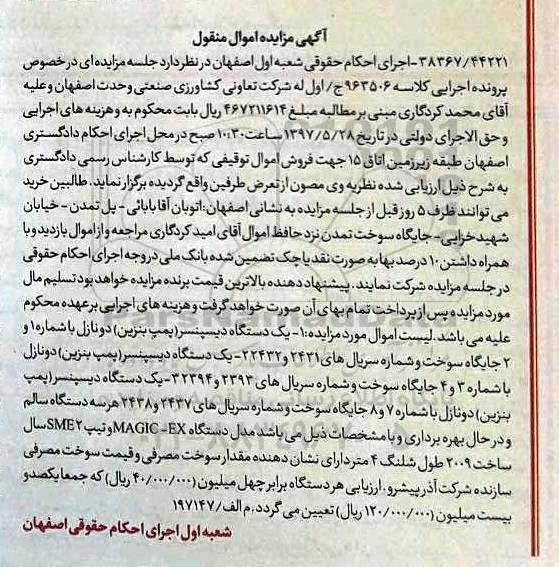 آگهی مزایده اموال منقول
۳۸۳۶۷/۴۴۲۲۱-اجرای احکام حقوقی شعبه اول اصفهان در نظر دارد جلسه مزایده ای در خصوص
پرونده اجرایی کلاسه ۹۶۳۵۰۶ ج/ اول له شرکت تعاونی کشاورزی صنعتی وحدت اصفهان و علیه
آقای محمد کردگاری مبنی بر مطالبه مبلغ ۴۶۷۲۱۱۶۱۴ ریال بابت محکوم به و هزینه های اجرایی
و حق الاجرای دولتی در تاریخ ۱۳۹۷/۵/۲۸ ساعت ۱۰:۳۰ صبح در محل اجرای احکام دادگستری
اصفهان طبقه زیرزمین اتاق ۱۵ جهت فروش اموال توقیفی که توسط کارشناس رسمی دادگستری
به شرح ذیل ارزیابی شده نظریه وی مصون از تعرض طرفین واقع گردیده برگزار نماید. طالبین خرید
می توانند ظرف ۵ روز قبل از جلسه مزایده به نشانی اصفهان: اتوبان آقابابائی - پل تمدن - خیابان
شهید خزایی- جایگاه سوخت تمدن نزد حافظ اموال آقای امید کردگاری مراجعه و از اموال بازدید و با
همراه داشتن ۱۰ درصد بها به صورت نقد یا چک تضمین شده بانک ملی در وجه اجرای احکام حقوقی
در جلسه مزایده شرکت نمایند. پیشنهاد دهنده بالاترین قیمت برنده مزایده خواهد بود تسلیم مال
مورد مزایده پس از پرداخت تمام بهای آن صورت خواهد گرفت و هزینه های اجرایی بر عهده محکوم
علیه می باشد. لیست اموال مورد مزایده: ۱- یک دستگاه دیسپنسر (پمپ بنزین) دو نازل با شماره ۱ و
۲ جایگاه سوخت و شماره سریال های ۲۴۳۱ و ۲۲۴۳۲- یک دستگاه دیسپنسر (پمپ بنزین) دو نازل
با شماره ۳ و ۴ جایگاه سوخت و شماره سریال های ۲۳۹۳ و ۳۲۳۹۴- یک دستگاه دیسپنسر (پمپ
بنزین) دو نازل با شماره ۷ و ۸ جایگاه سوخت و شماره سریال های ۲۴۳۷ و ۲۴۳۸ هر سه دستگاه سالم
و در حال بهره برداری و با مشخصات ذیل می باشد مدل دستگاه MAGIC-EX و تیپ SME۲ سال
ساخت ۲۰۰۹ طول شلنگ ۴ متر دارای نشان دهنده مقدار سوخت مصرفی و قیمت سوخت مصرفی
سازنده شرکت آذر پیشرو. ارزیابی هر دستگاه برابر چهل میلیون (۴۰/۰۰۰/۰۰۰ ریال) که جمعا یکصد و
بیست میلیون (۱۲۰/۰۰۰/۰۰۰ ریال) تعیین می گردد. م الف/ ۱۹۷۱۴۷
شعبه اول اجرای احکام حقوقی اصفهان